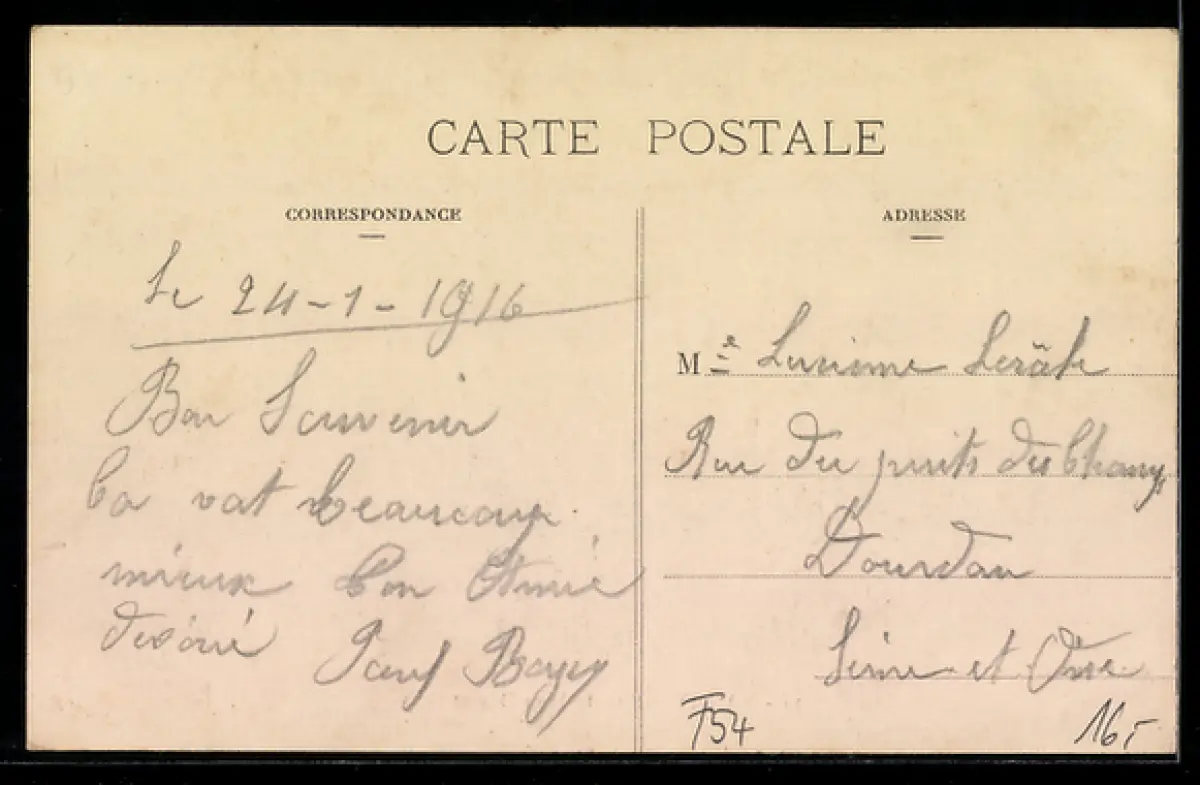 CARTE POSTALE
CORRESPONDANCE
ADRESSE
Le 24-1-1916
Bon Souvenir
Ca vat beaucoup
mieux Ton Amie
Paul Boyer
Mle Lucienne
Rue du puits des Champs
Dourdan
Seine et Oise
F54
16,-